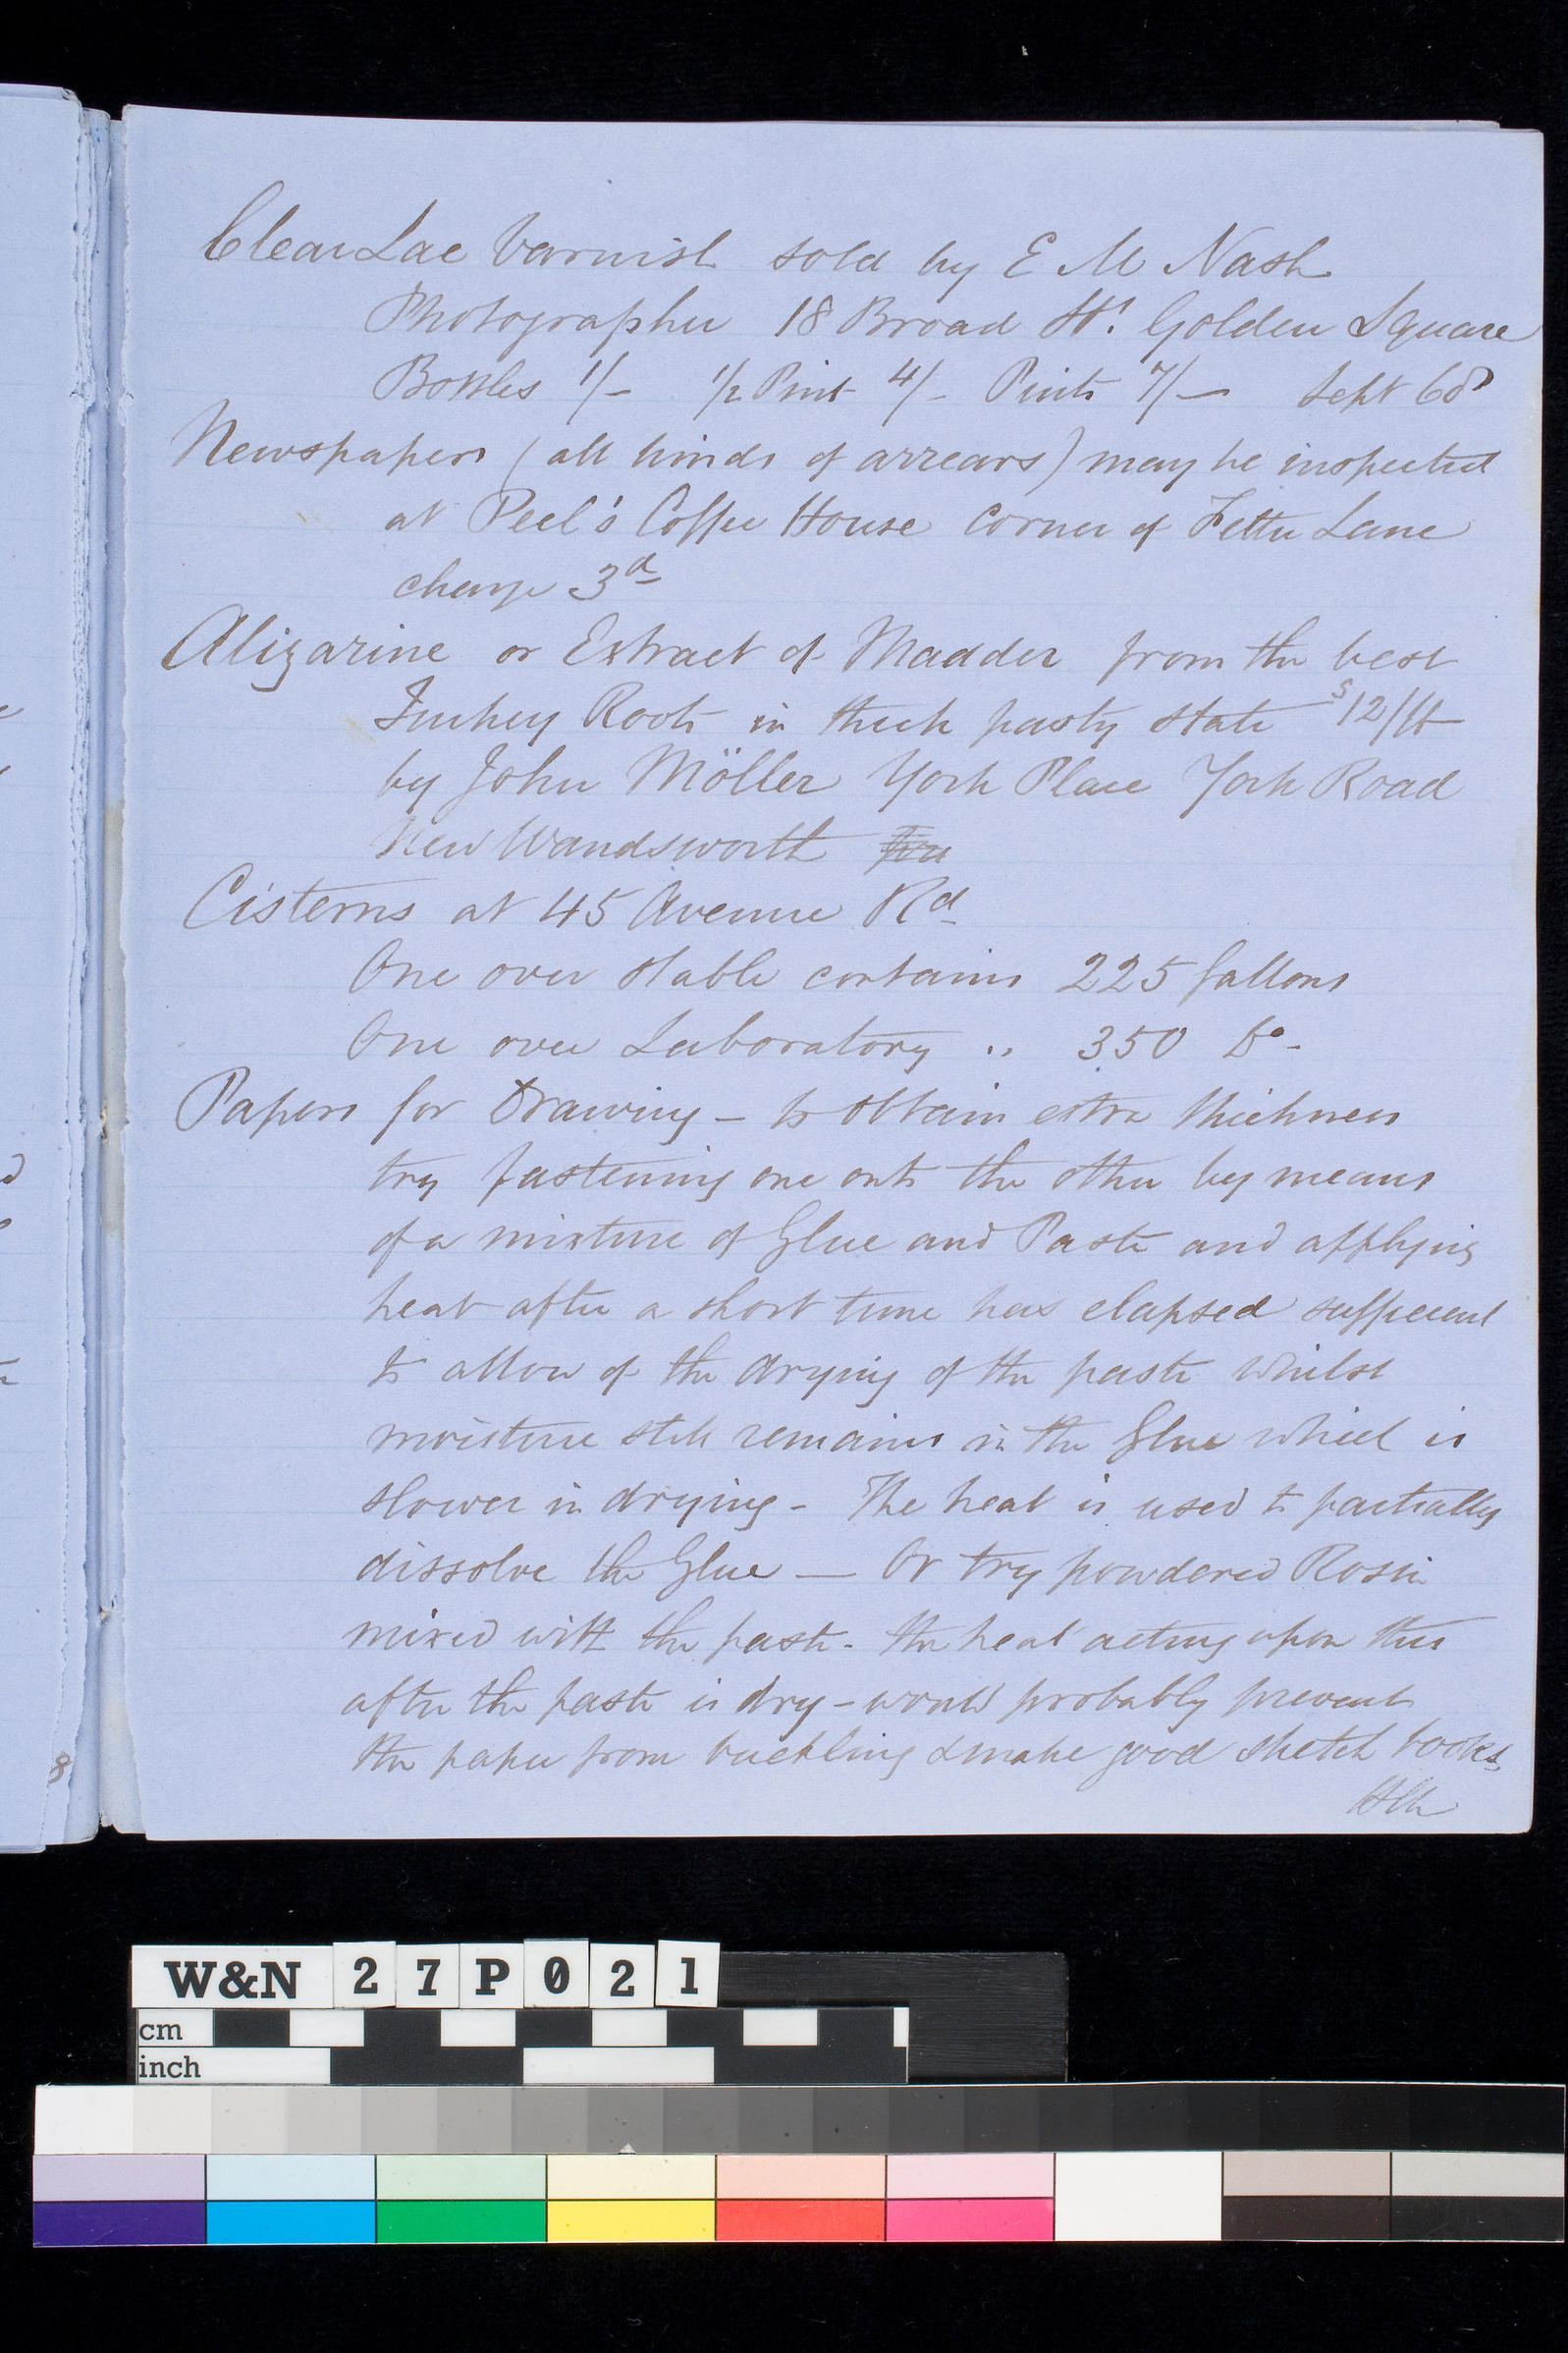 Clear Lac Varnish sold by E M Nash
Photographer 18 Broad St. Golden Square
Bottles 1/- 1/2 Pint 4/- Pints 7/- Sept 68
Newspapers (all kinds of arrears) may be inspected
at Peel's Coffee House corner of Fetter Lane
charge 3d
Alizarine or Extract of Madder from the best
Turkey Roots in thick pasty state s12/lb
by John Möller York Place York Road
New Wandsworth
Cisterns at 45 Avenue Rd
One over stable contains 225 Gallons
One over Laboratory " 350 Do-
Papers for Drawing - to obtain extra thickness
try fastening one onto the other by means
of a mixture of Glue and Paste and applying
heat after a short time has elapsed sufficient
to allow of the drying of the paste whilst
moisture still remains in the Glue which is
slower in drying - The heat is used to partially
dissolve the Glue — Or try powdered Rosin
mixed with the paste - the heat acting upon this
after the paste is dry - would probably prevent
the paper from buckling & make good sketch books
W&N 27P021
cm
inch